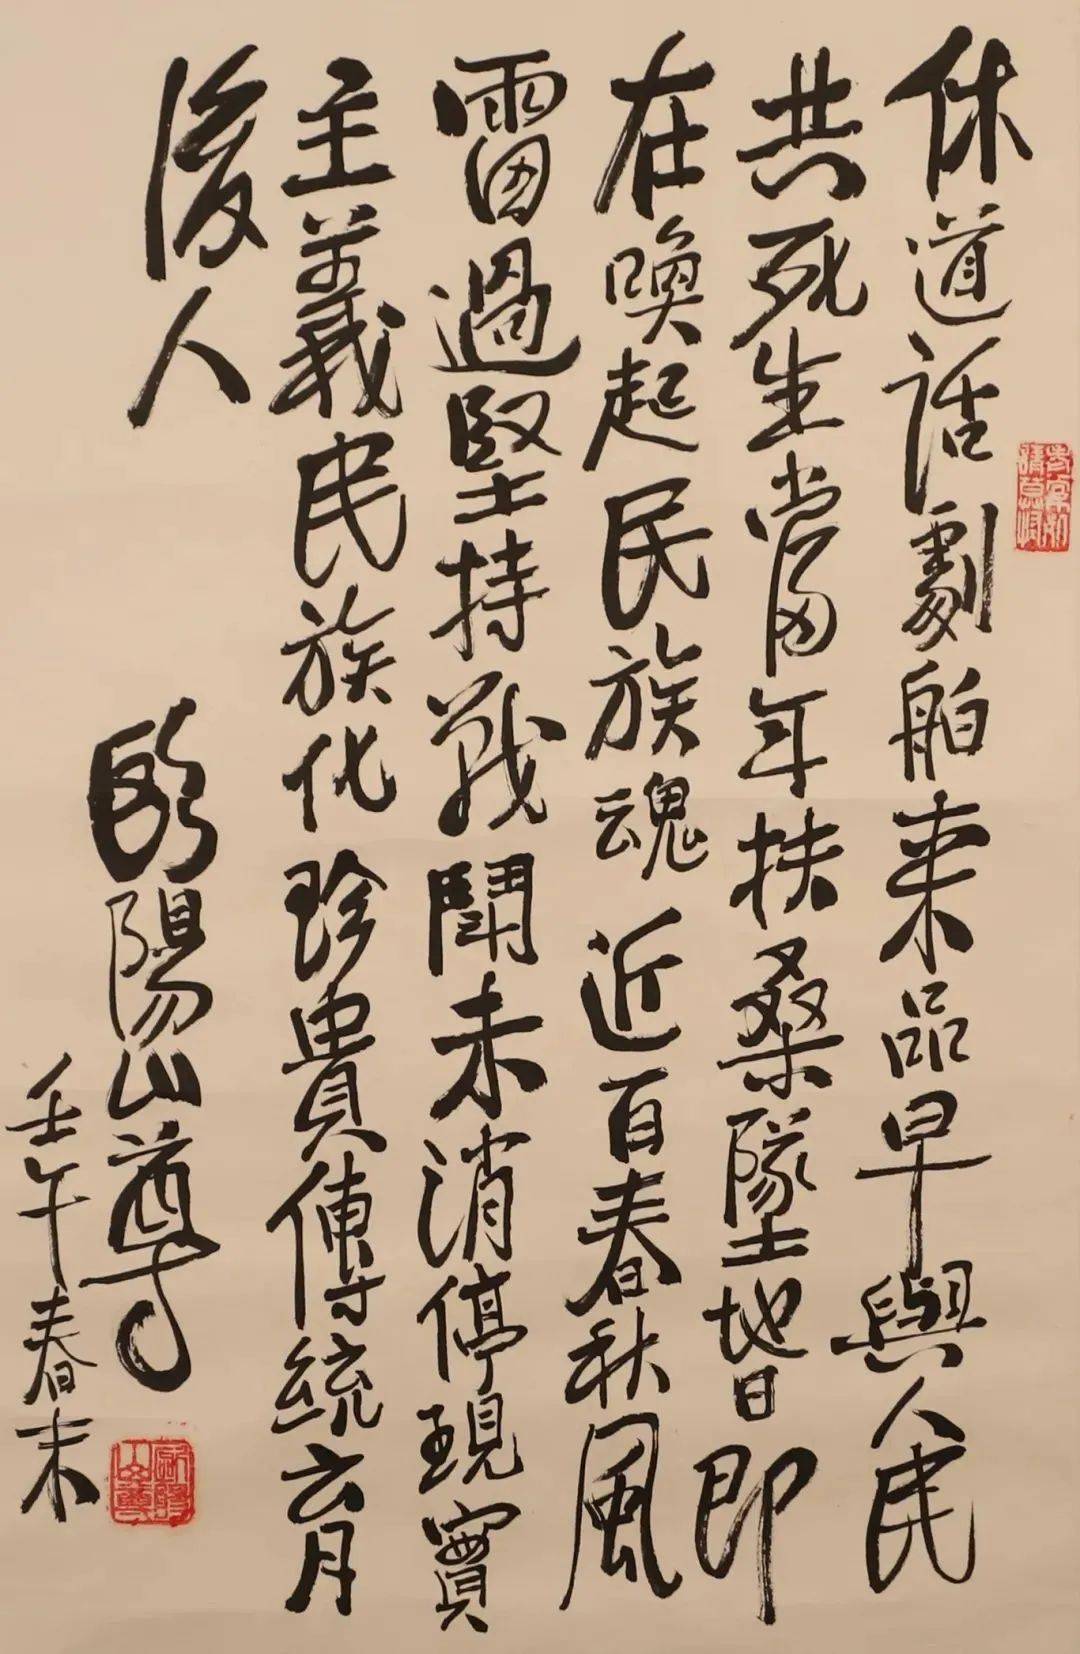 休道話劇舶来品早與人民
共死生當年扶桑墜地旹即
在喚起民族魂近百春秋風
雷過堅持戰鬥未消停現實
主義民族化珍貴傳統育
後人
歐陽山尊
壬午春末
歐陽山尊